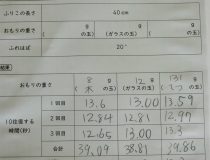 ふりこの長さ 40cm
おもりの重さ g (の玉) g (ガラスの玉) g (の玉)
ふれはば 20°
結果
おもりの重さ 8 木 g の玉) 12 g (ガラスの玉) g の玉)
10往復する時間(秒)
1回目 13.6 13.00 13.59
2回目 12.84 12.81 12.97
3回目 12.65 13.00 13.3
合計 39.09 38.81 39.86